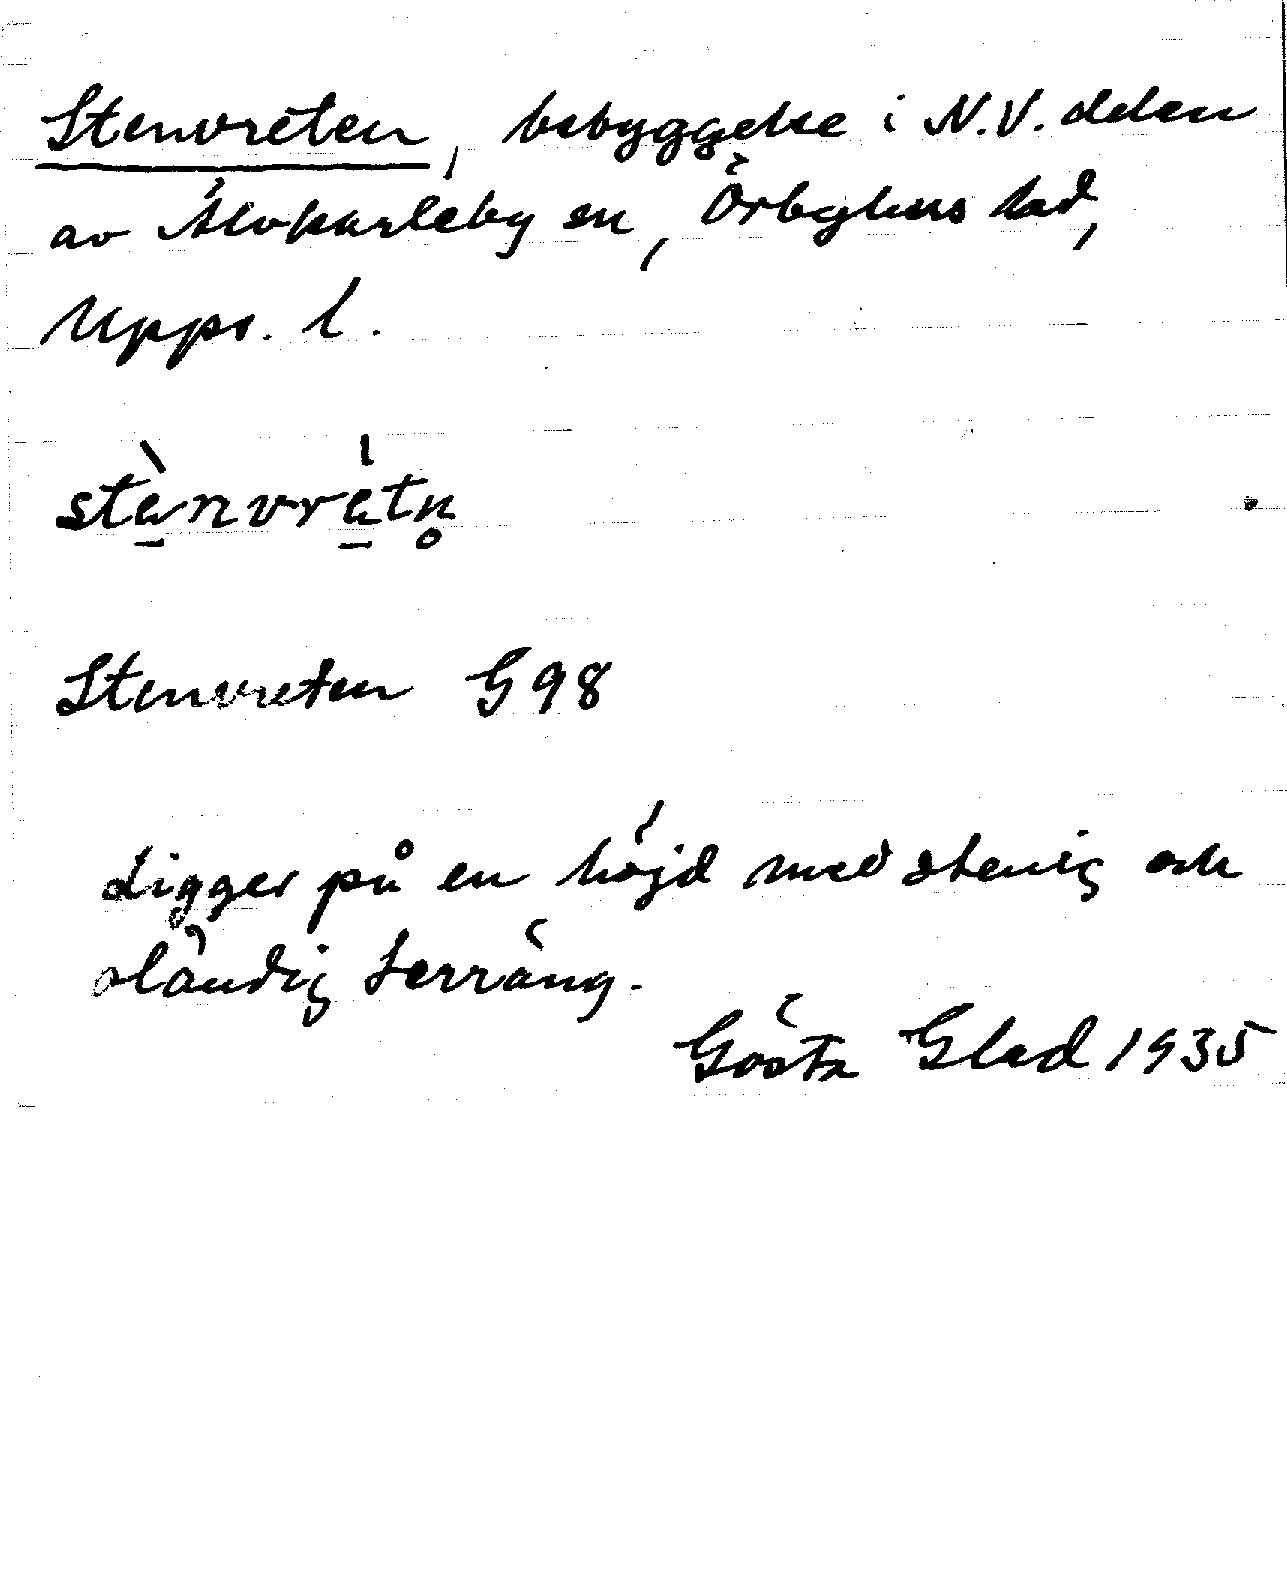 Stenvreten, bebyggelse i N.V. delen
av Älvkarleby sn, Örbyhus hd,
Upps. l.
stè̱nvrè̱tn̥
Stenvreten G 98
Ligger på en höjd med stenig och
oländig terräng.
Gösta Glad 1935